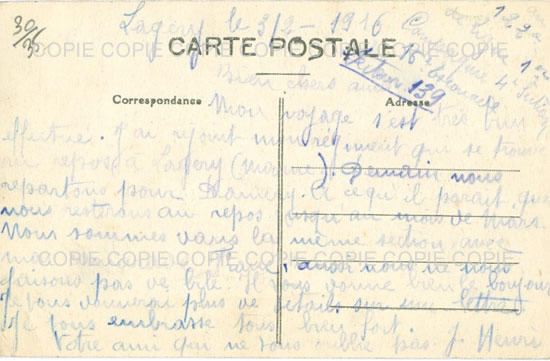 30/36
Lagery le 3/2-1916
CARTE POSTALE
Bien chers amis
Correspondance
Adresse
Mon voyage s'est très bien
effectué. J'ai rejoint mon régiment qui se trouve
au repos à Lagery (Marne). Demain nous
repartons pour A ce qu'il parait que
nous resterons au repos jusqu'au mois de Mars.
Nous sommes dans la même section avec
aussi nous ne nous
faisons pas de bile. Il vous donne bien le bonjour
Je vous donnerai plus de détails sur une lettre
Je vous embrasse tous bien fort.
Votre ami qui ne vous oublie pas. J. Henri
139
COPIE COPIE COPIE COPIE COPIE COPIE
COPIE COPIE COPIE COPIE COPIE COPIE
COPIE COPIE COPIE COPIE COPIE